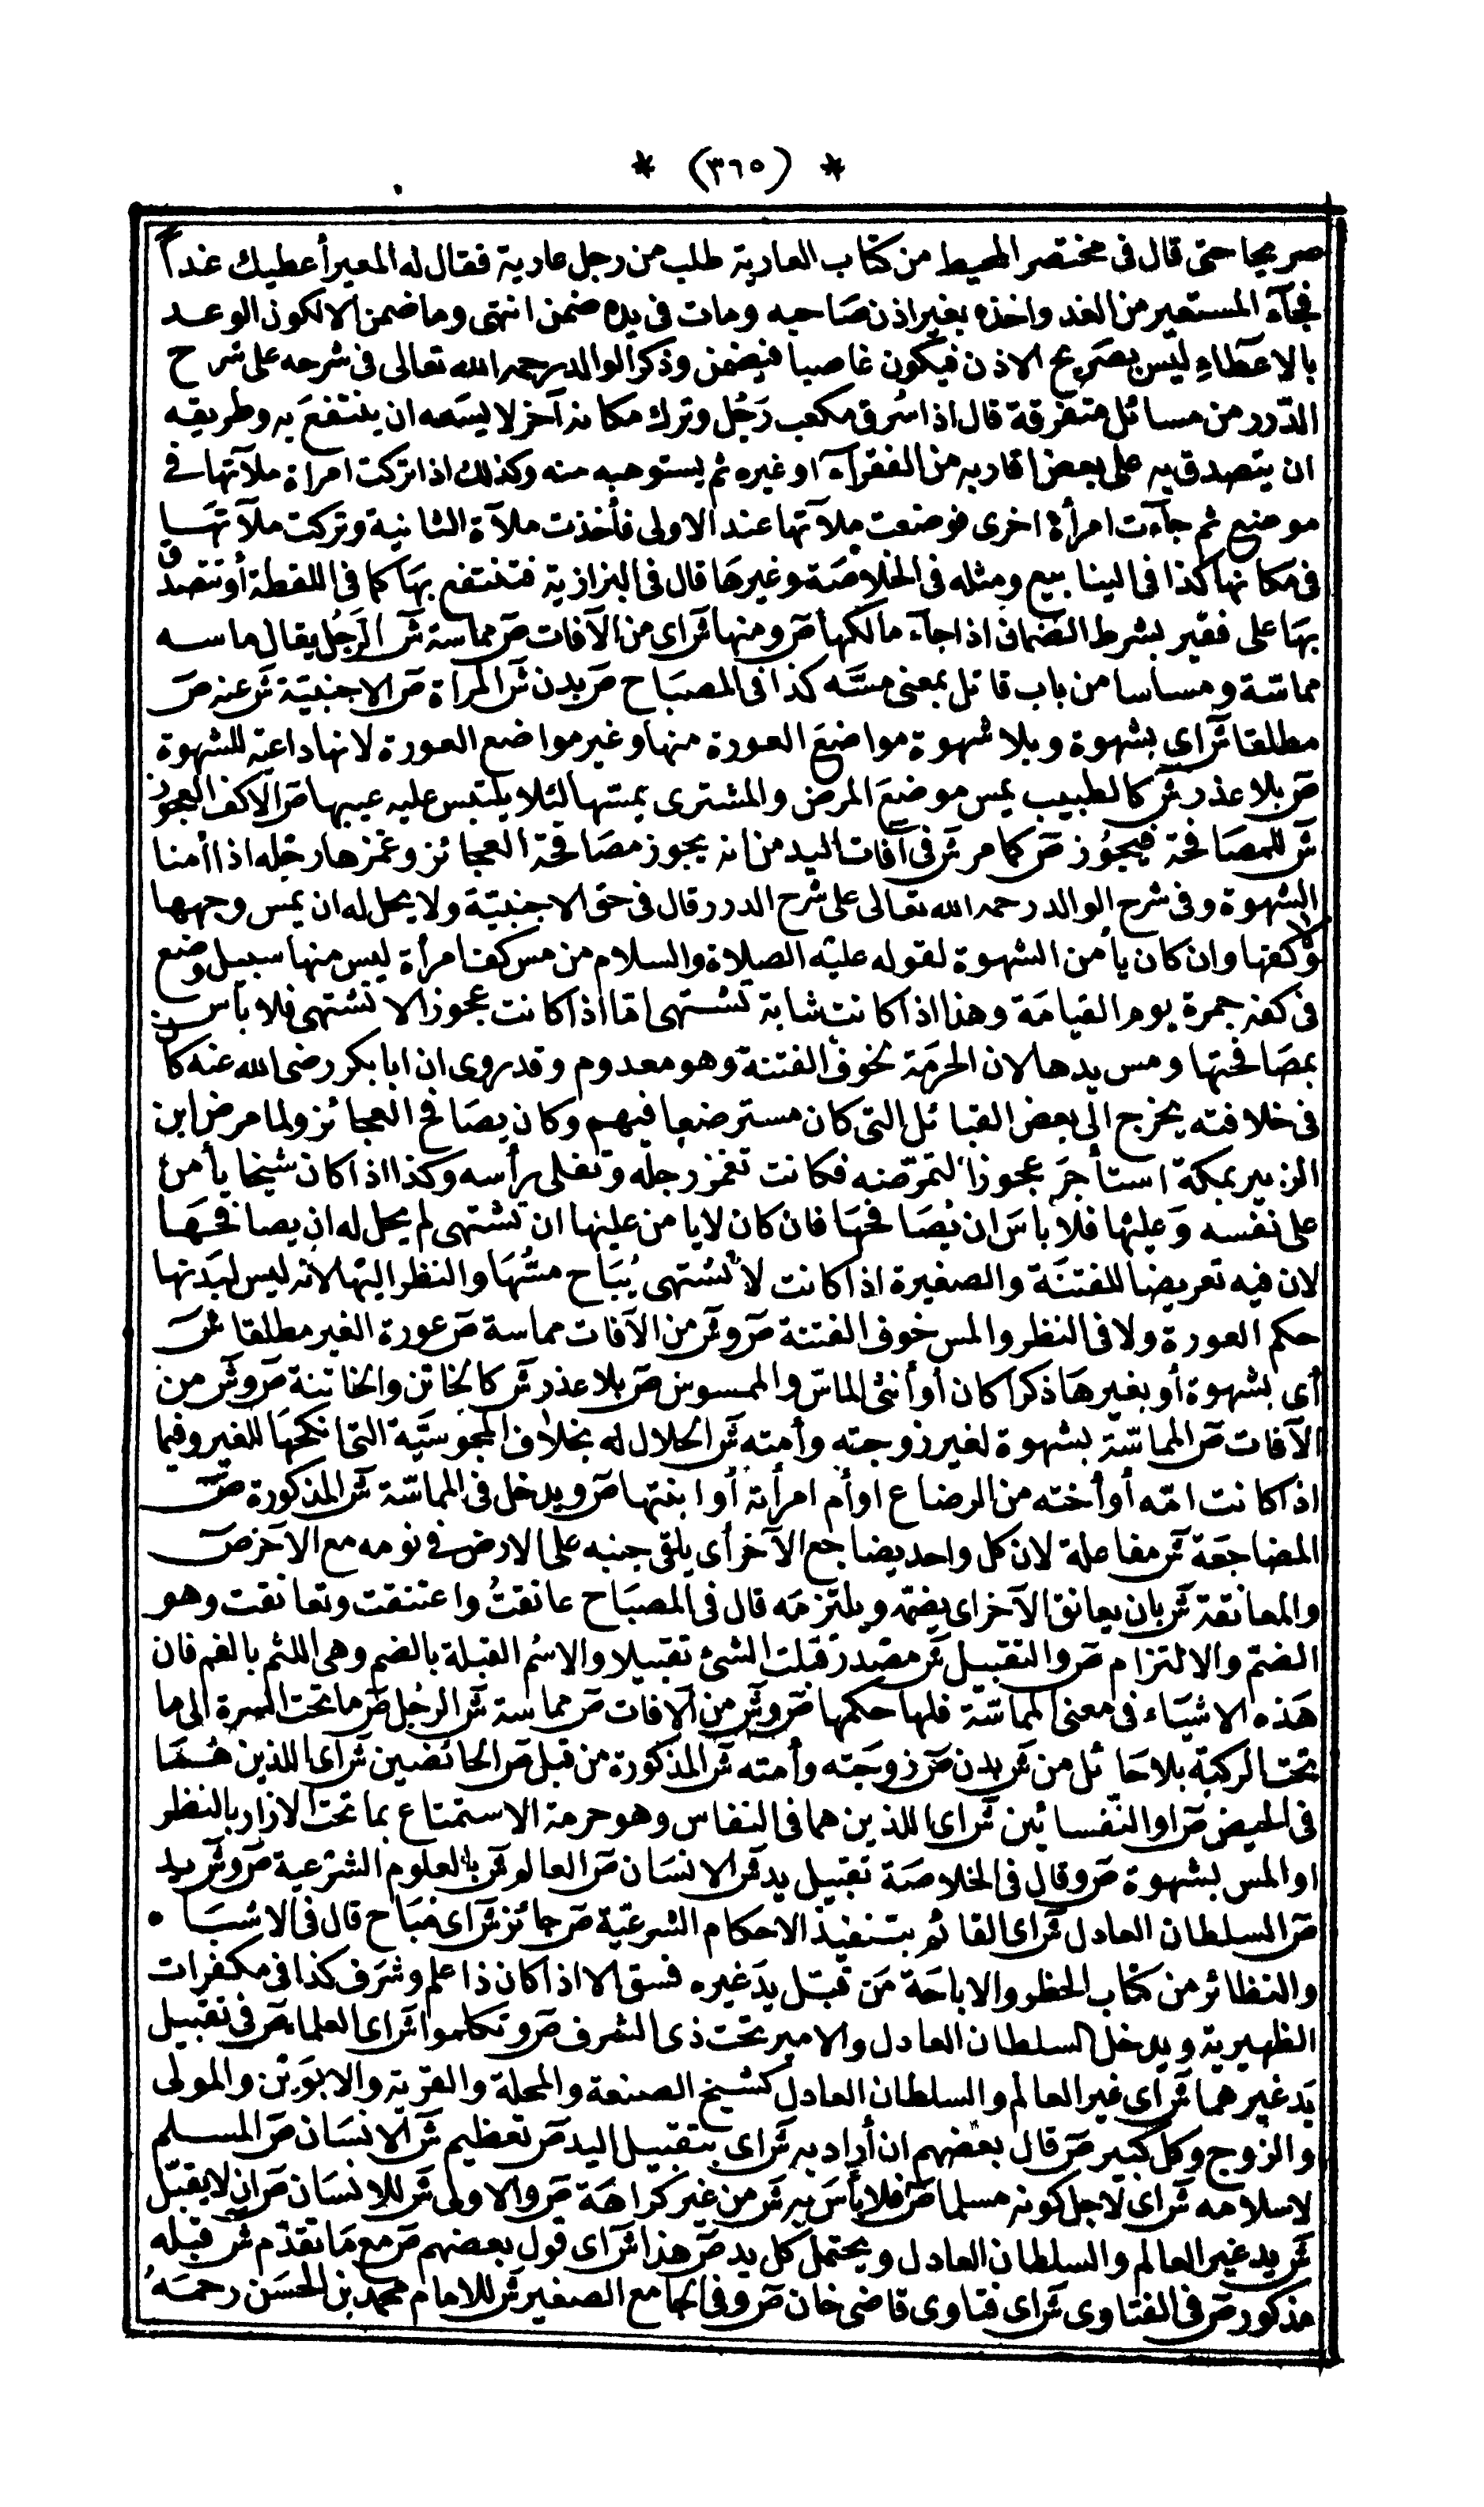 * (٣٦٥) *
صريحا حتى قال فى مختصر المحيط من كتاب العارية طلب من رجل عارية فقال له المعير أعطيك غداً
فجآء المستعير من الغد واخذه بغير اذن صَاحبه ومات فى يده ضمن انتهى وما ضمن الالكون الوعد
بالاعطاءِ ليس بصَريح الاذن فيكون غاصبا فيضمن وذكر الوالد رحمه الله تعالى فى شرحه على شرح
الدّرر من مسائل متفرقة قال اذا سُرق مكعب رَجُل وترك مكانه آخر لا يسَعه ان ينتفعَ به وطريقه
ان يتصدق به على بعض اقاربه من الفقرآء او غيره ثم يستوهبه منه وكذلك اذا تركت امراة ملآتها فى
موضع ثم جآءت امرأة اخرى فوضعت ملآتها عند الاولى فأخذت ملآة الثانية وتركت ملآتهَا
فى مكانها كذا فى الينابيع ومثله فى الخلاصَة وغيرها قال فى البزازية فتنتفع بهَا كما فى اللقطة أو تتصدق
بهَا على فقير بشرط الضمان اذا جآء مالكها صَ ومنها شَ اى من الآفات صَ مماسة شَ الرَجُل يقال ماسه
مماسّة ومساسا من باب قاتل بمعنى مسَّه كذا فى المصبَاح صَ بدن شَ المرأة صَ الاجنبيَة شَ عنه صَ
مطلقا شَ اى بشهوة وبلا شهوة مواضعَ العورة منها وغير مواضع العورة لانها داعية للشهوة
صَ بلا عذر شَ كالطبيب يمس موضعَ المرض والمشترى يمسّها لئلا يلتبس عليه عيبها صَ الا كف العجوز
شَ للمصَافحة فيجُوز صَ كما مر شَ فى آفات اليد من انه يجوز مصَافحة العجائز وغمزها رجله اذا أمنا
الشهوة وفى شرح الوالد رحمه الله تعالى على شرح الدرر قال فى حق الاجنبيّة ولا يحل له ان يمس وجهها
ولا كفها وان كان يأمن الشهوة لقوله عليه الصلاة والسلام من مس كف امرأة ليس منها سبيل وضع
فى كفه جمرة يوم القيامَة وهذا اذا كانت شابة تشتهى امّا اذا كانت عجوزا لا تشتهى فلا بأس
بمصَافحتها ومس يدها لان الحرمَة لخوف الفتنة وهو معدوم وقد روى ان ابا بكر رضى الله عنه كان
فى خلافته يخرج الى بعض القبائل التى كان مسترضعا فيهم وكان يصَافح العجائز ولما مرض ابن
الزبير بمكة استأجَر عجوزا لتمرّضه فكانت تغمز رجله وتفلى رأسه وكذا اذا كان شيخا يأمن
على نفسه وَعليْها فلا باسَ ان يُصَافحهَا فان كان لا يا من عليها ان تشتهى لم يحل له ان يصافحهَا
لان فيه تعريضا للفتنَة والصغيرة اذا كانت لا تُشتهى يُبَاح مسُّهَا والنظر اليْها لانه ليس لبَدنها
حكم العورة ولا فى النظر والمس خوف الفتنة صَ وشَ من الآفات مماسة صَ عورة الغير مطلقا شَ
أى بشهوة أو بغيرهَا ذكرا كان أو أنثى الماسّ والممسوس صَ بلا عذر شَ كالخاتن والخاتنة صَ وشَ من
الآفات صَ المماسّة بشهوة لغير زوجته وأمته شَ الحلال له بخلاف المجَوسيَّة التى انكحهَا للغير وفيما
اذا كانت امّه أو أخته من الرضاع او أم امرأته أو ابنتها صَ ويدخل فى المماسّة شَ المذكورة صَ
المضاجَعة شَ مفاعلة لان كل واحد يضاجع الآخر أى يلقى جنبه على الارض فى نومه مع الآخر صَ
والمعانقة شَ بان يعانق الآخر اى يضمّه ويلتزمَه قال فى المصبَاح عانقتُ واعتنقت وتعانقت وهو
الضمّ والالتزام صَ والتقبيل شَ مصْدر قبلت الشئ تقبيلا والاسُم القبلة بالضم وهى اللثم بالفم فان
هَذه الاشيَاء فى معنى المماسّة فلها حكمها صَ وشَ من الآفات صَ مماسة شَ الرجُل صَ ما تحت السرة الى ما
تحت الركبَة بلا حَائل من شَ بدن صَ زوجَته وأمته شَ المذكورة من قبل صَ الحائضين شَ اى اللذين همَا
فى الحيض صَ او النّفسائين شَ اى اللذين هما فى النفاس وهو حرمة الاستمتاع بما تحت الازار بالنظر
او المس بشهوة صَ وقال فى الخلاصَة تقبيل يد شَ الانسَان صَ العالم شَ بالعلوم الشرعية صَ وشَ يد
صَ السلطان العادل شَ اى القائم بتنفيذ الاحكام الشرعيّة صَ جائز شَ اى مُبَاح قال فى الاشبَاه
والنظائر من كتاب الحظر والاباحَة مَن قبّل يدَ غيره فسق الا اذا كان ذا علم وشرَف كذا فى مكفرات
الظهيرية ويدخل السلطان العادل والامير تحت ذى الشرف صَ وتكلموا شَ اى العلماء صَ فى تقبيل
يَد غيرهما شَ اى غير العالم والسلطان العادل كشيخ الصنعة والمحلة والقرية والابوَين والمولى
والزوج وكل كبير صَ قال بعضهم ان أراد به شَ اى بتقبيل اليد صَ تعظيم شَ الانسَان صَ المسلم
لاسلامه شَ اى لاجل كونه مسلما صَ فلا بأسَ به شَ من غير كراهَة صَ والاولى شَ للانسَان صَ ان لا يقبّل
شَ يد غير العالم والسلطان العادل ويحتمل كل يد صَ هذا شَ اى قول بعضهم صَ مع مَا تقدّم شَ قبله
مذكور صَ فى الفتاوى شَ اى فتاوى قاضى خان صَ وفى الجامع الصغير شَ للامام محمد بن الحسَن رحمَهُ